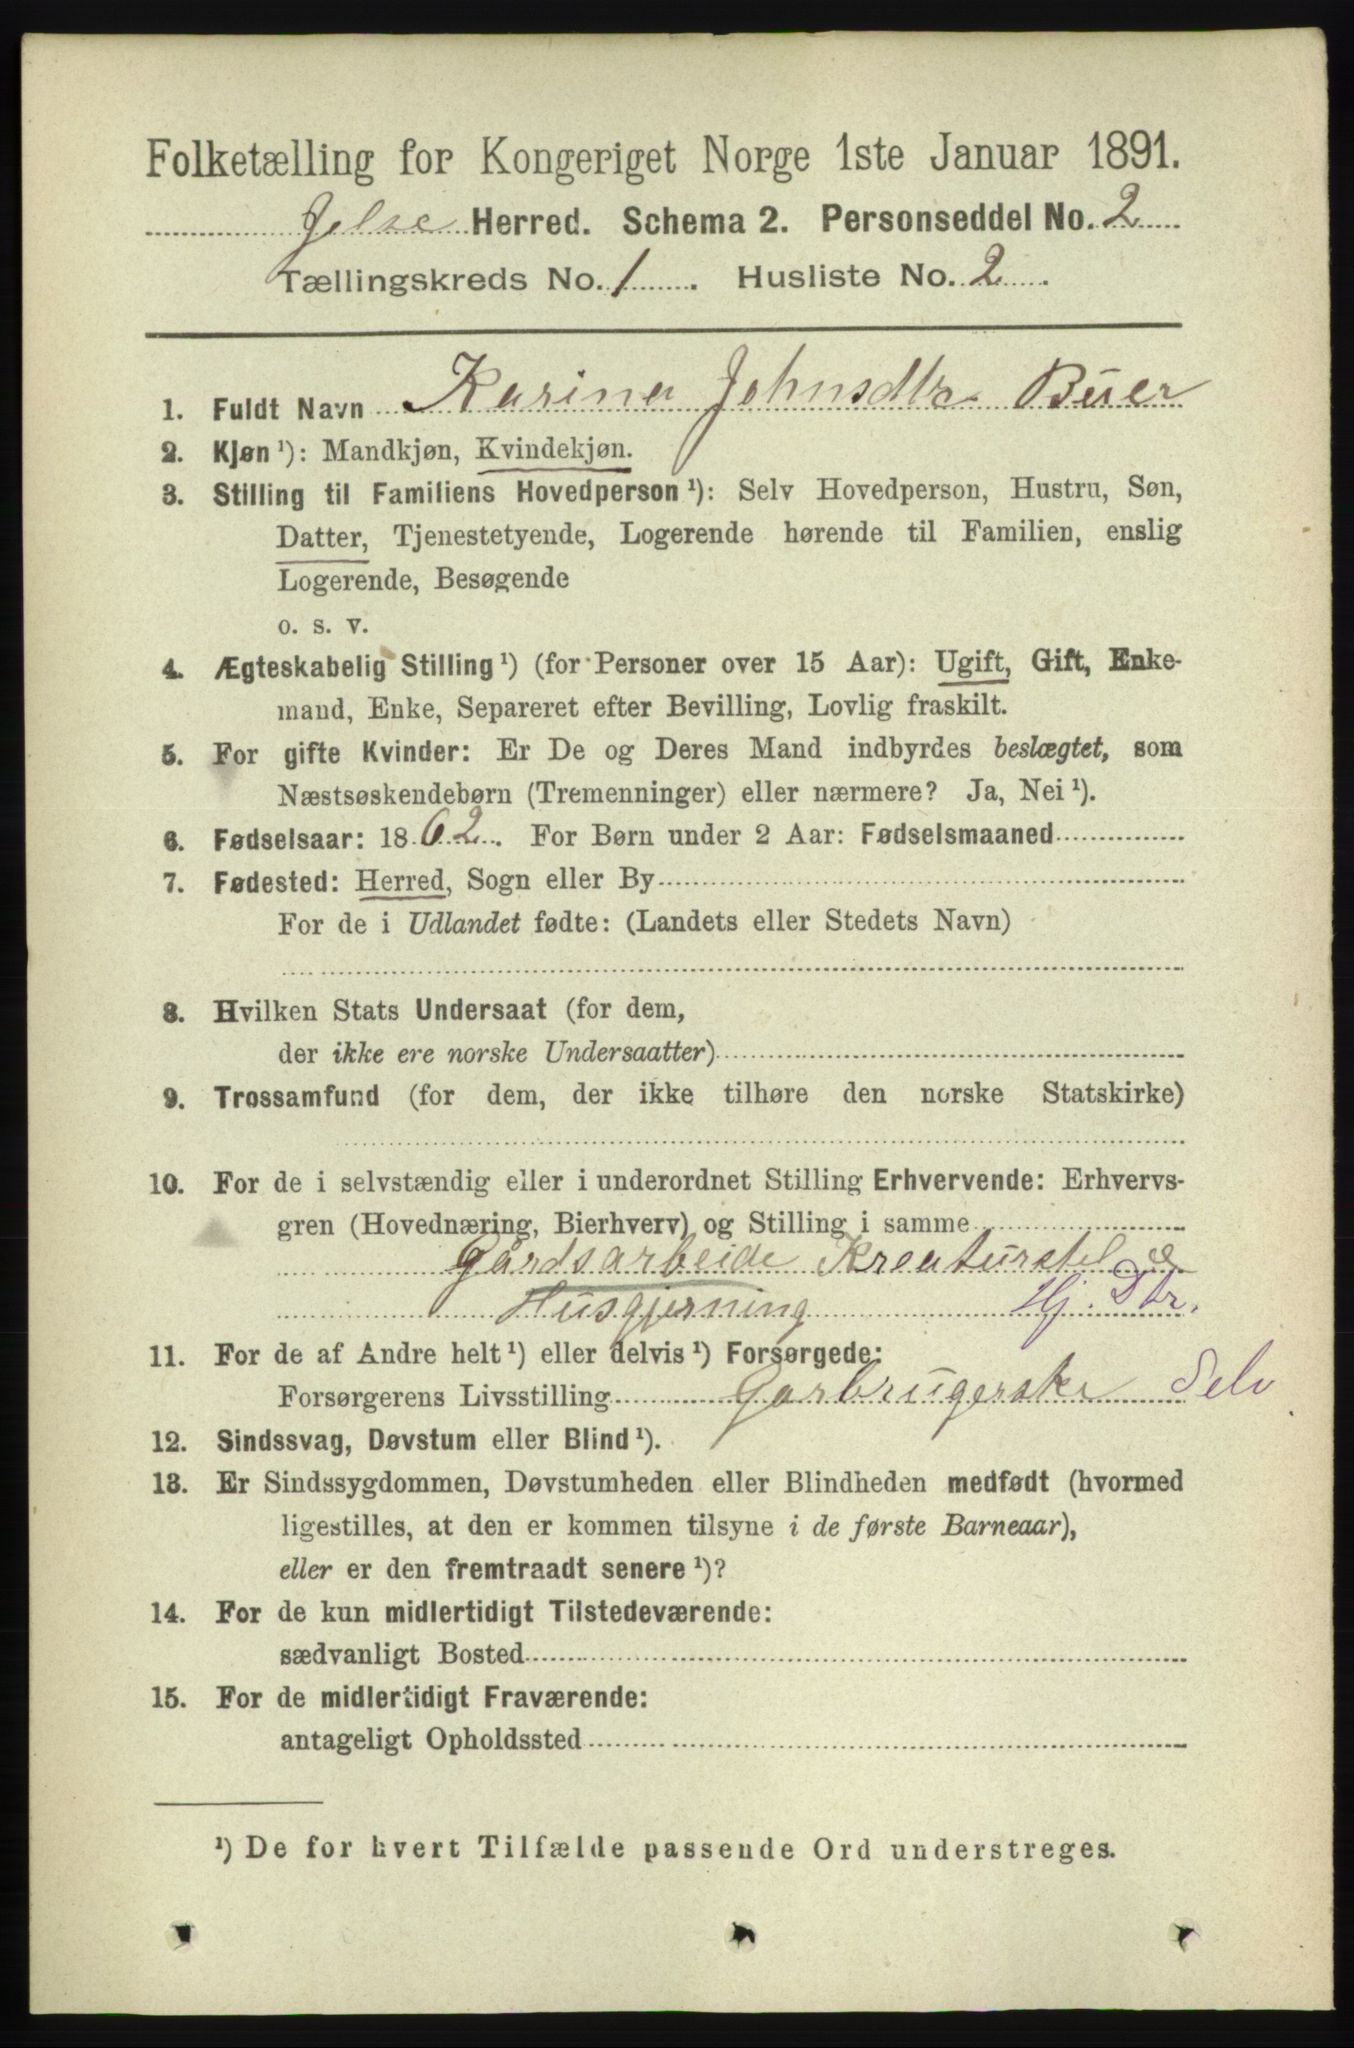 Folketælling for Kongeriget Norge 1ste Januar 1891.
Jelse Herred. Schema 2. Personseddel No. 2
Tællingskreds No. 1. Husliste No. 2.
1. Fuldt Navn Karina Johnsdtr Buer
2. Kjøn ¹): Mandkjøn, Kvindekjøn.
3. Stilling til Familiens Hovedperson ¹): Selv Hovedperson, Hustru, Søn,
Datter, Tjenestetyende, Logerende hørende til Familien, enslig
Logerende, Besøgende
o. s. v.
4. Ægteskabelig Stilling ¹) (for Personer over 15 Aar): Ugift, Gift, Enke-
mand, Enke, Separeret efter Bevilling, Lovlig fraskilt.
5. For gifte Kvinder: Er De og Deres Mand indbyrdes beslægtet, som
Næstsøskendebørn (Tremenninger) eller nærmere? Ja, Nei ¹).
6. Fødselsaar: 1862. For Børn under 2 Aar: Fødselsmaaned
7. Fødested: Herred, Sogn eller By
For de i Udlandet fødte: (Landets eller Stedets Navn)
8. Hvilken Stats Undersaat (for dem,
der ikke ere norske Undersaatter)
9. Trossamfund (for dem, der ikke tilhøre den norske Statskirke)
10. For de i selvstændig eller i underordnet Stilling Erhvervende: Erhvervs-
gren (Hovednæring, Bierhverv) og Stilling i samme
Gårdsarbeide Kreaturstel &
Husgjerning Hj. Dtr.
11. For de af Andre helt ¹) eller delvis ¹) Forsørgede:
Forsørgerens Livsstilling Garbrugerske Selv
12. Sindssvag, Døvstum eller Blind ¹).
13. Er Sindssygdommen, Døvstumheden eller Blindheden medfødt (hvormed
ligestilles, at den er kommen tilsyne i de første Barneaar),
eller er den fremtraadt senere ¹)?
14. For de kun midlertidigt Tilstedeværende:
sædvanligt Bosted
15. For de midlertidigt Fraværende:
antageligt Opholdssted
¹) De for hvert Tilfælde passende Ord understreges.